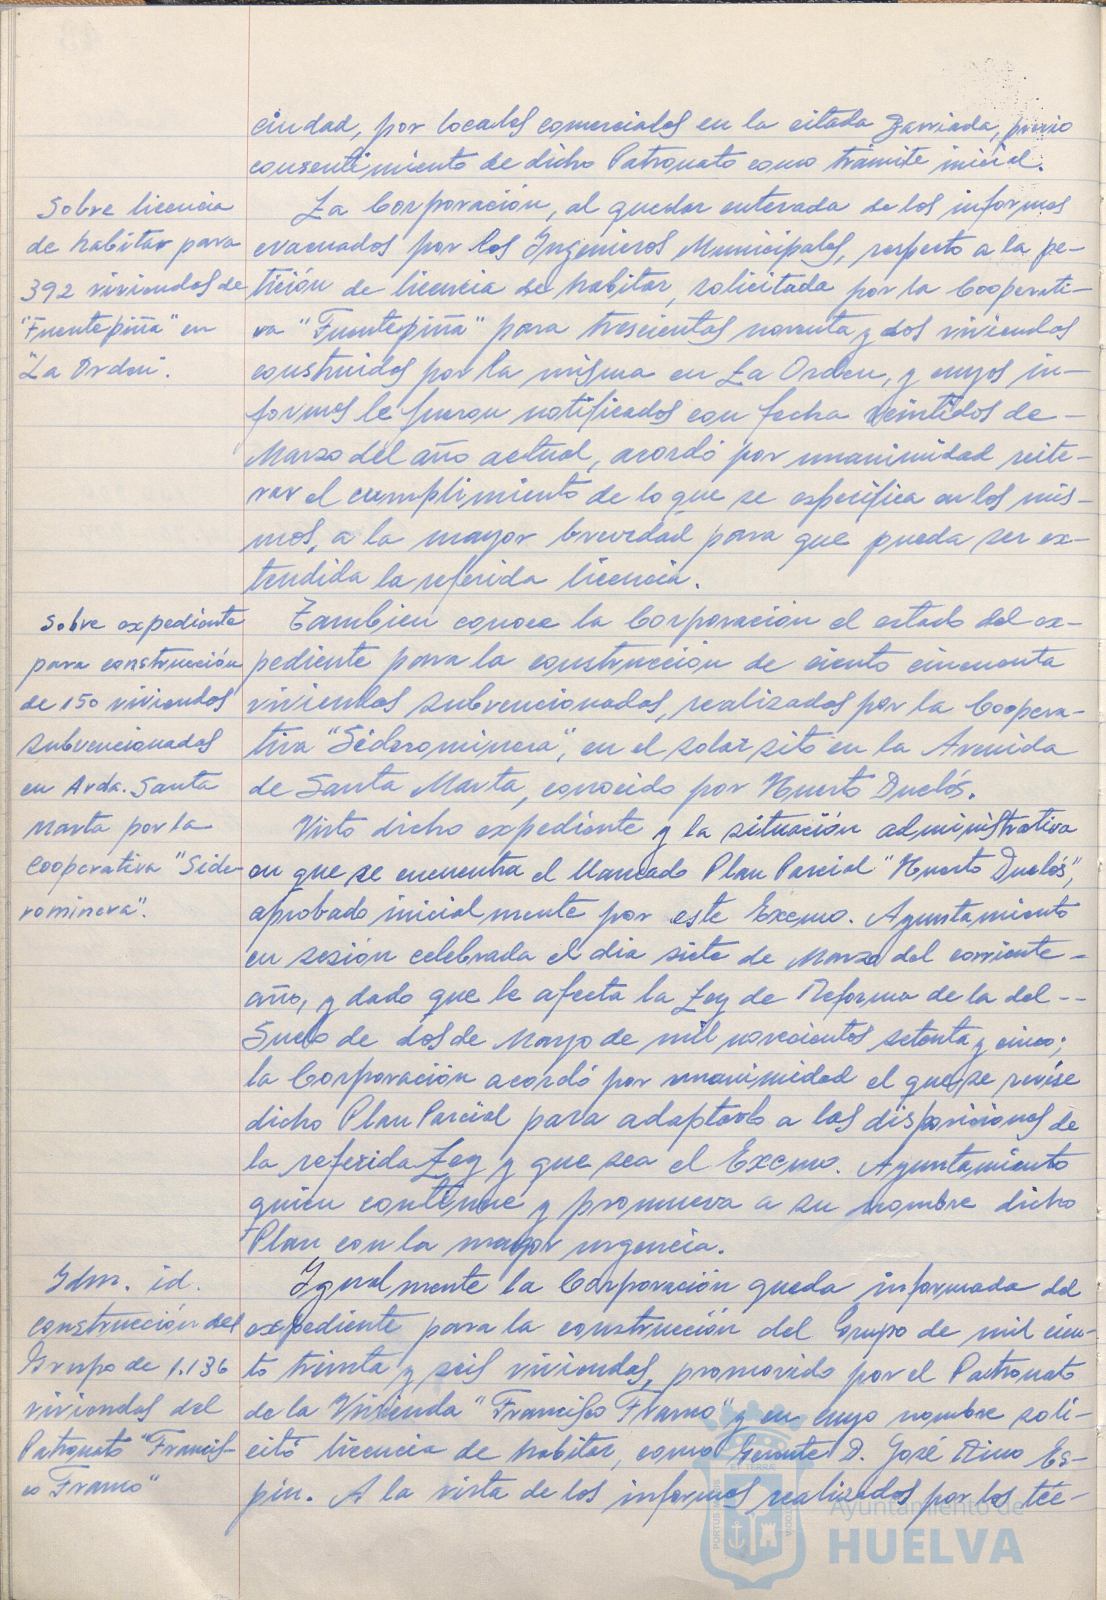 ciudad, por locales comerciales en la citada Barriada, previo
consentimiento de dicho Patronato como trámite inicial.
Sobre licencia
de habitar para
392 viviendas de
"Fuentepiña" en
"La Orden".
La Corporación, al quedar enterada de los informes
evacuados por los Ingenieros Municipales, respecto a la pe-
tición de licencia de habitar, solicitada por la Cooperati-
va "Fuentepiña" para trescientas noventa y dos viviendas
construidas por la misma en La Orden, y cuyos in-
formes le fueron notificados con fecha veintidos de -
Marzo del año actual, acordó por unanimidad reite-
rar el cumplimiento de lo que se especifica en los mis-
mos, a la mayor brevedad para que pueda ser ex-
tendida la referida licencia.
Sobre expediente
para construcción
de 150 viviendas
subvencionadas
en Avda. Santa
Marta por la
Cooperativa "Side-
rominera".
Tambien conoce la Corporación el estado del ex-
pediente para la construcción de ciento cincuenta
viviendas subvencionadas, realizadas por la Coopera-
tiva "Siderominera", en el solar sito en la Avenida
de Santa Marta, conocido por Huerto Duclós.
Visto dicho expediente y la situación administrativa
en que se encuentra el llamado Plan Parcial "Huerto Duclós",
aprobado inicialmente por este Excmo. Ayuntamiento
en sesión celebrada el dia siete de Marzo del corriente -
año, y dado que le afecta la Ley de Reforma de la del --
Suelo de dos de Mayo de mil novecientos setenta y cinco;
la Corporación acordó por unanimidad el que se revise
dicho Plan Parcial para adaptarlo a las disposiciones de
la referida Ley y que sea el Excmo. Ayuntamiento
quien continue y promueva a su nombre dicho
Plan con la mayor urgencia.
Idm. id.
construcción del
Grupo de 1.136
viviendas del
Patronato "Francis-
co Franco"
Igualmente la Corporación queda informada del
expediente para la construcción del Grupo de mil cien-
to treinta y seis viviendas, promovido por el Patronato
de la Vivienda "Francisco Franco" y en cuyo nombre soli-
citó licencia de habitar, como Gerente D. José Dino Es-
pin. A la vista de los informes realizados por los téc-
Ayuntamiento de
HUELVA